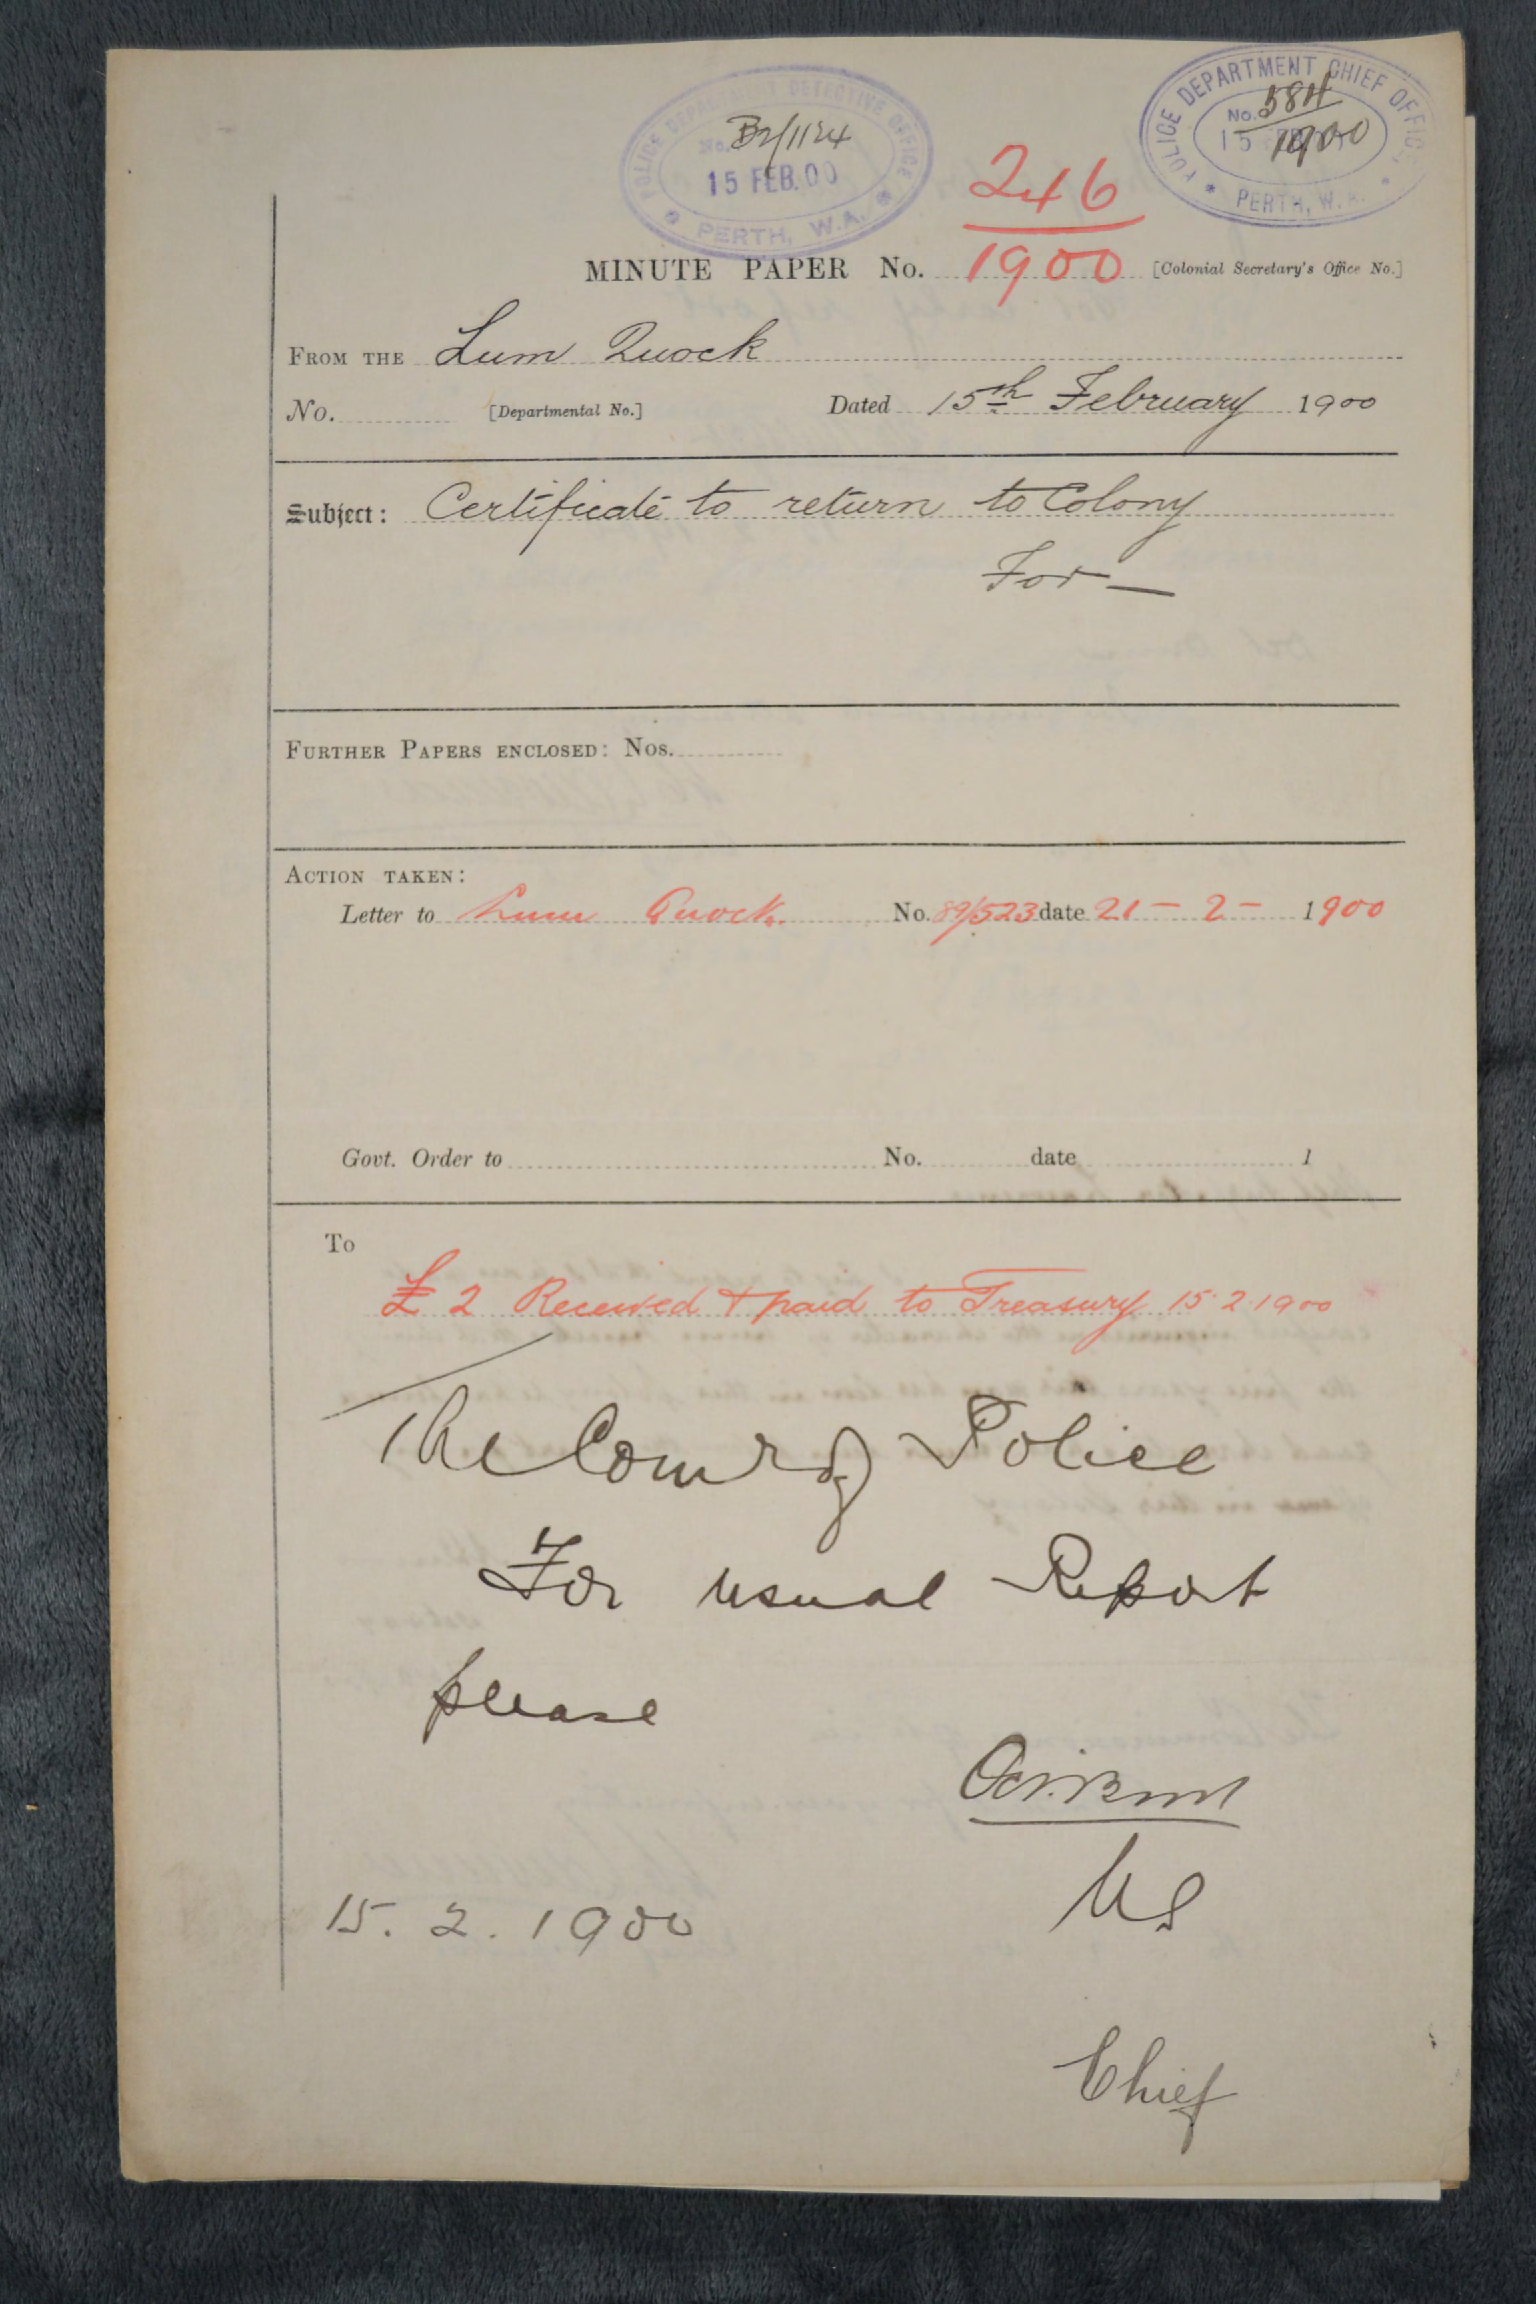 POLICE DEPARTMENT DETECTIVE OFFICE
No. B2/1124
15 FEB. 00
PERTH, W.A.
POLICE DEPARTMENT CHIEF OFFICE,
No. 584
1900
PERTH, W.A.
246
MINUTE PAPER No. 1900 [Colonial Secretary's Office No.]
FROM THE Lum Quock
No. [Departmental No.] Dated 15th February 1900
Subject: Certificate to return to Colony
For —
FURTHER PAPERS ENCLOSED: Nos.
ACTION TAKEN:
Letter to Lum Quock. No. 89/523 date 21 - 2 - 1900
Govt. Order to No. date 1
To
£2 Received & paid to Treasury 15.2.1900
The Comr of Police
For usual Report
please
US
15. 2. 1900
Chief